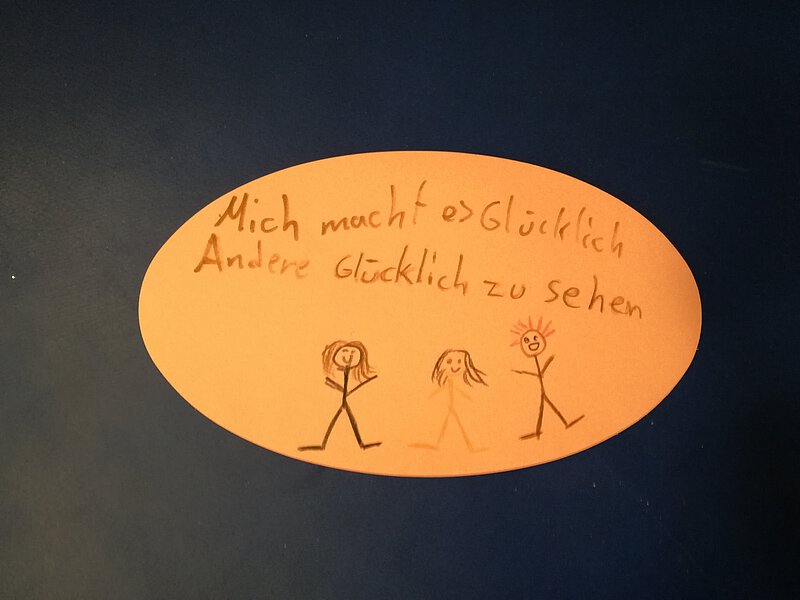 Mich macht es Glücklich
Andere Glücklich zu sehen